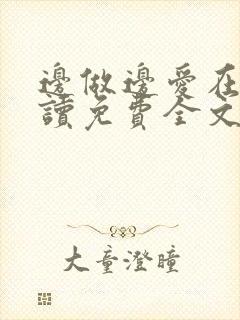 邊做邊愛在
讀免費全文
大童澄瞳